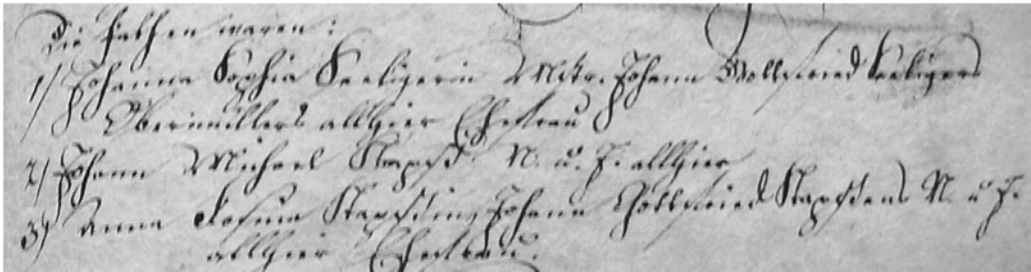 Die Pathen waren:
1) Johanna Sophia Seeligerin Mstr. Johann Gottfried Seeligers
Obermüllers allhier Ehefrau
2) Johann Michael N. u. J. allhier
3) Anna Rosina Johann Gottfried N. u J.
allhier Ehefrau.